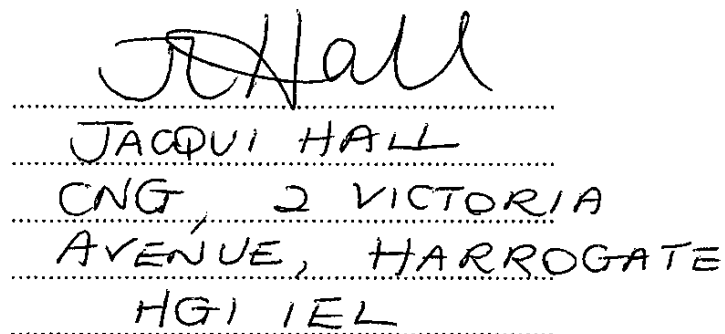 JR Hall
JACQUI HALL
CNG, 2 VICTORIA
AVENUE, HARROGATE
HG1 1EL